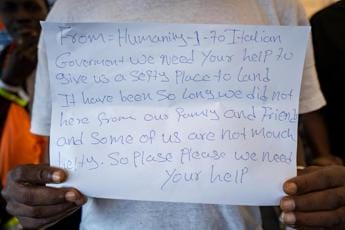 From = Humanity-1-To Italian
Goverment we need your help to
give us a Sefty Place to land
It have been So long we did not
here from our family and Friend
and Some of us are not mouch
helty. So Plase Please we need
your help